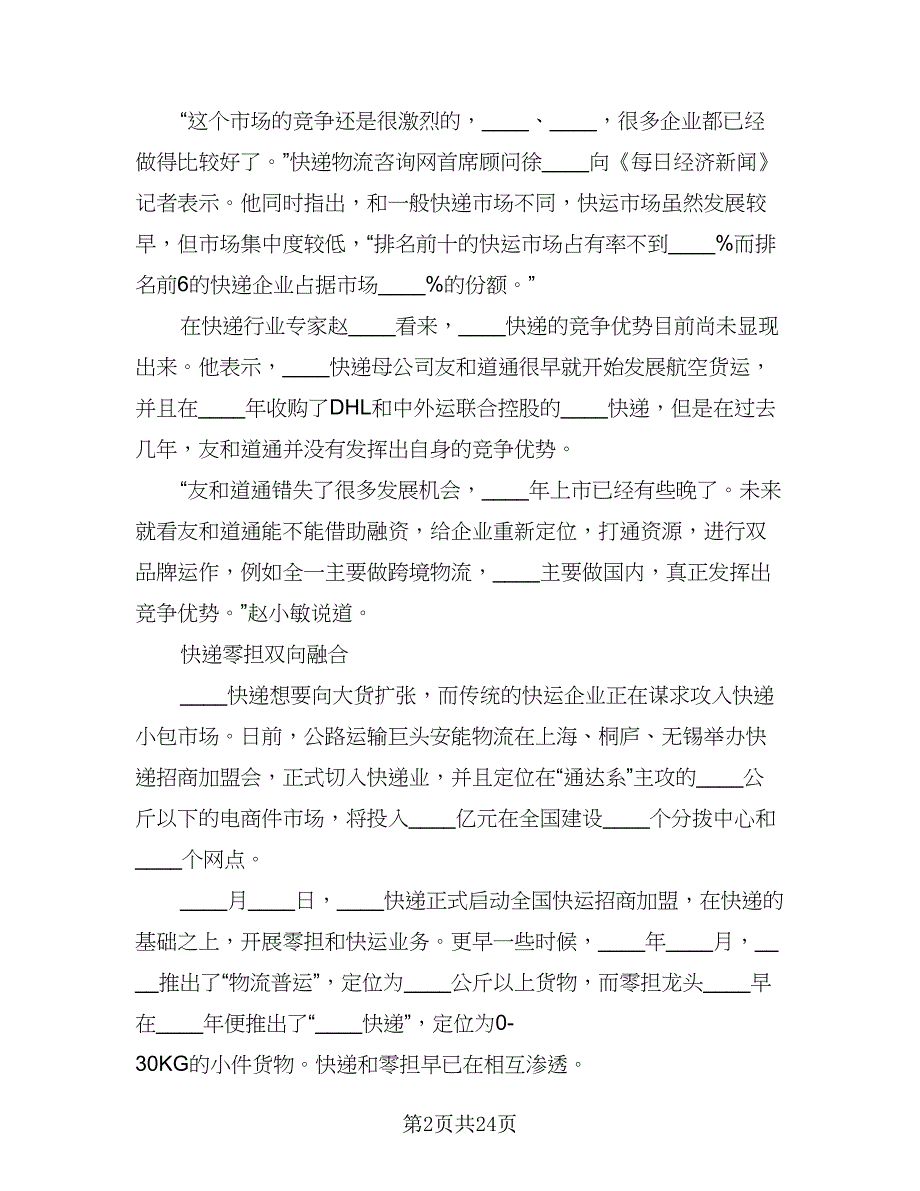 “这个市场的竞争还是很激烈的，____、____，很多企业都已经
做得比较好了。”快递物流咨询网首席顾问徐____向《每日经济新闻》
记者表示。他同时指出，和一般快递市场不同，快运市场虽然发展较
早，但市场集中度较低，“排名前十的快运市场占有率不到____%而排
名前6的快递企业占据市场____%的份额。”
在快递行业专家赵____看来，____快递的竞争优势目前尚未显现
出来。他表示，____快递母公司友和道通很早就开始发展航空货运，
并且在____年收购了DHL和中外运联合控股的____快递，但是在过去
几年，友和道通并没有发挥出自身的竞争优势。
“友和道通错失了很多发展机会，____年上市已经有些晚了。未来
就看友和道通能不能借助融资，给企业重新定位，打通资源，进行双
品牌运作，例如全一主要做跨境物流，____主要做国内，真正发挥出
竞争优势。”赵小敏说道。
快递零担双向融合
____快递想要向大货扩张，而传统的快运企业正在谋求攻入快递
小包市场。日前，公路运输巨头安能物流在上海、桐庐、无锡举办快
递招商加盟会，正式切入快递业，并且定位在“通达系”主攻的____公
斤以下的电商件市场，将投入____亿元在全国建设____个分拨中心和
____个网点。
____月____日，____快递正式启动全国快运招商加盟，在快递的
基础之上，开展零担和快运业务。更早一些时候，____年____月，__
__推出了“物流普运”，定位为____公斤以上货物，而零担龙头____早
在____年便推出了“____快递”，定位为0-
30KG的小件货物。快递和零担早已在相互渗透。
第2页共24页